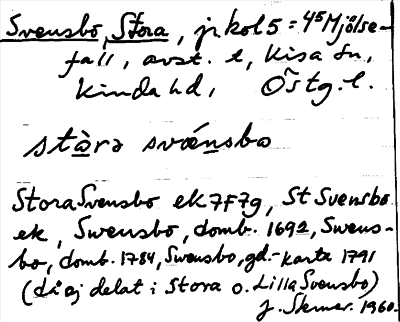 Svensbo, Stora, jr kol 5 = 4⁵ Mjölse-
fall, avst. l, Kisa sn,
Kinda hd, Östg. l.
stàrə svǽnsbo
Stora Svensbo ek 7F7g, St Svensbo
ek, Swensbo, domb. 1692, Swens-
bo, domb. 1784, Swensbo, gd.-karta 1791
(då ej delat i Stora o. Lilla Svensbo)
J. Stemer. 1960.